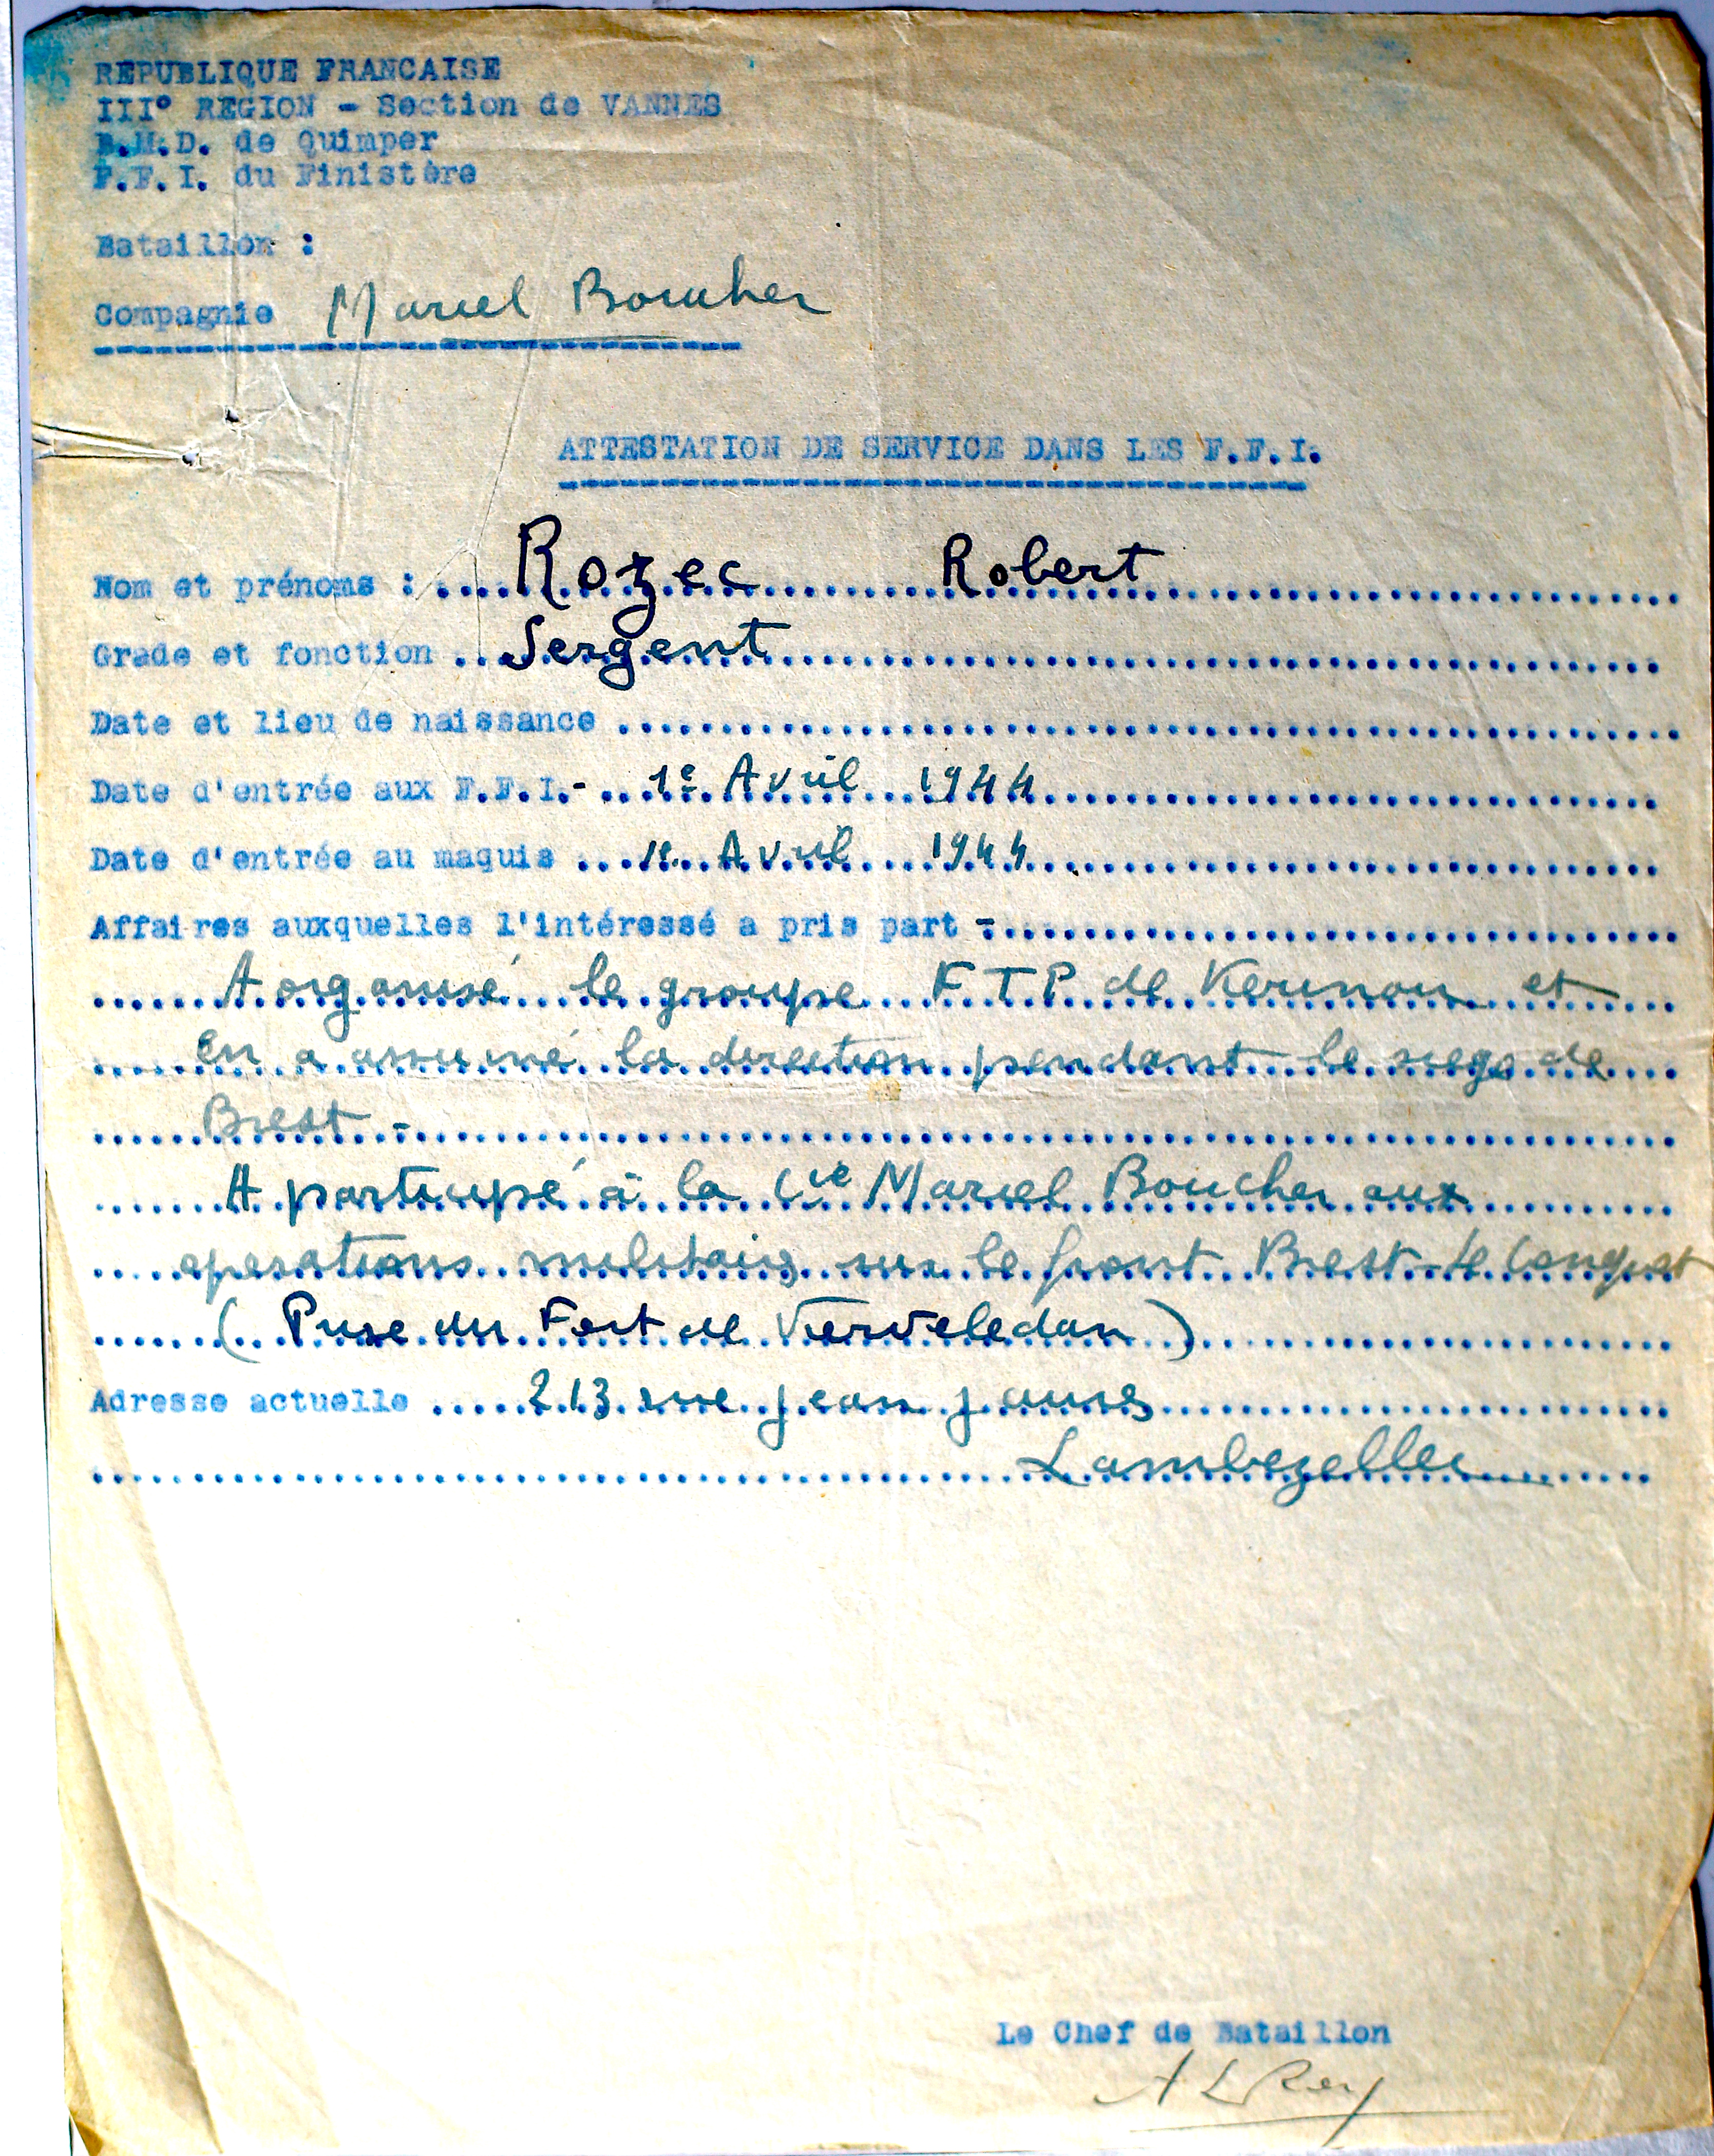 REPUBLIQUE FRANCAISE
III° REGION - Section de VANNES
B.M.D. de Quimper
F.F.I. du Finistère
Bataillon :
Compagnie Marcel Boucher
ATTESTATION DE SERVICE DANS LES F.F.I.
Nom et prénoms : Rozec Robert
Grade et fonction Sergent
Date et lieu de naissance
Date d'entrée aux F.F.I.- 1e Avril 1944
Date d'entrée au maquis 1e Avril 1944
Affaires auxquelles l'intéressé a pris part -
A organisé le groupe FTP de Kerinou et
en a assumé la direction pendant le siege de
Brest -
A participé à la Cie Marcel Boucher aux
operations militaires sur le front Brest-Le Conquet
( Prise du Fort de Vierveledan )
Adresse actuelle 213 rue jean jaures
Lambezellec
Le Chef de Bataillon